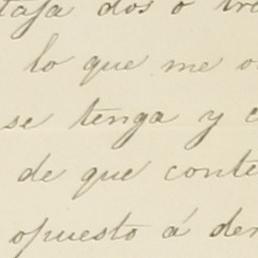 taja dos o tre
lo que me o
se tenga y c
de que conte
opuesto á der